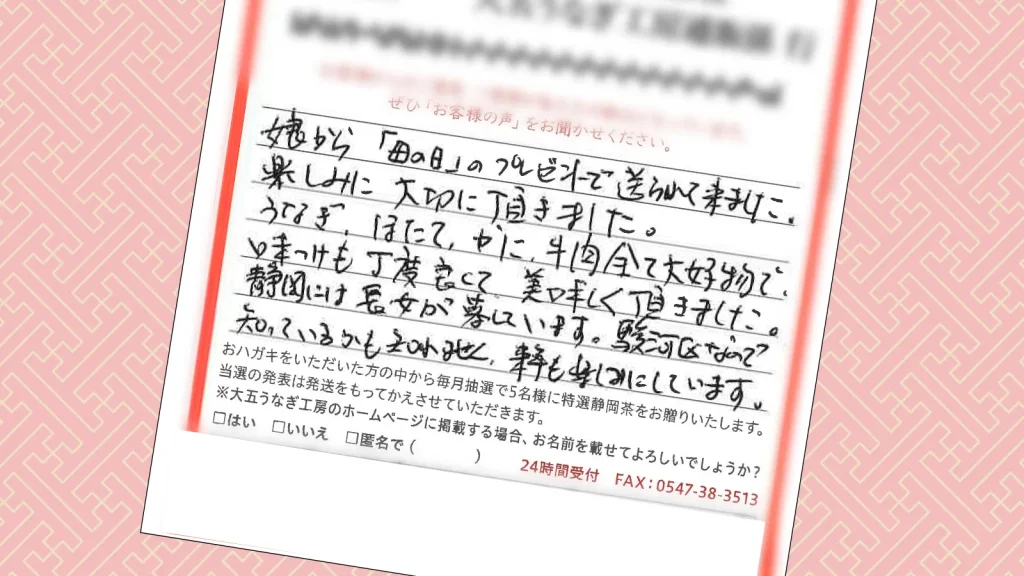 大五うなぎ工房通販係 行
ぜひ「お客様の声」をお聞かせください。
娘から「母の日」のプレゼントで送られて来ました。
楽しみに 大切に頂きました。
うなぎ、ほたて、かに、牛肉全て大好物で、
味つけも丁度良くて 美味しく頂きました。
静岡には長女が暮しています。駿河区なので
知っているかも知れません。来年も楽しみにしています。
おハガキをいただいた方の中から毎月抽選で5名様に特選静岡茶をお贈りいたします。
当選の発表は発送をもってかえさせていただきます。
※大五うなぎ工房のホームページに掲載する場合、お名前を載せてよろしいでしょうか?
□はい □いいえ □匿名で( )
24時間受付 FAX:0547-38-3513